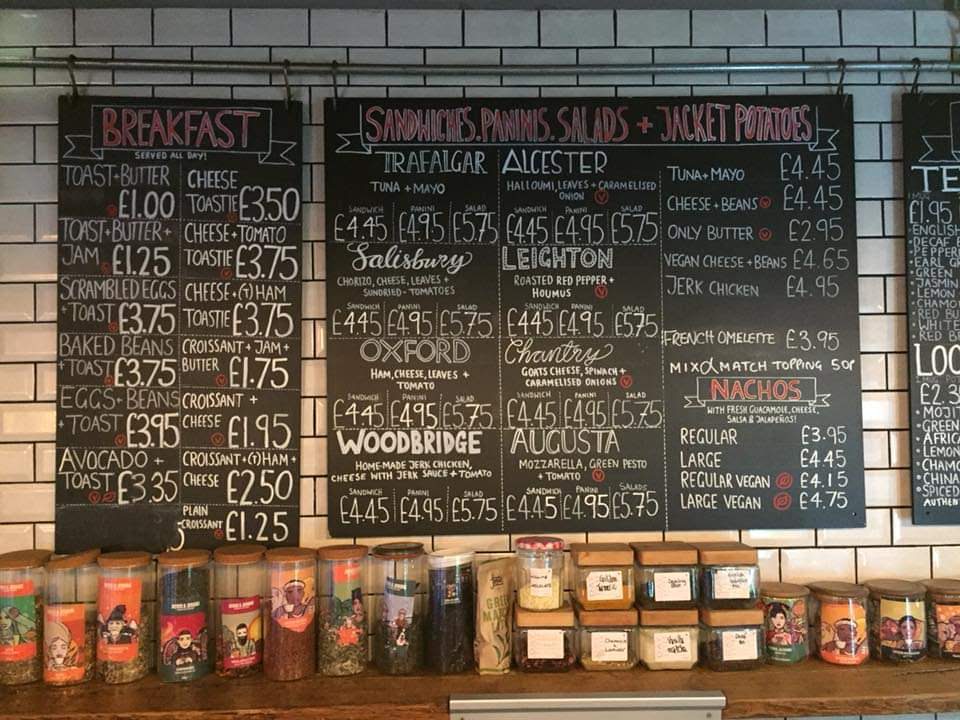 BREAKFAST
SERVED ALL DAY!
TOAST+BUTTER
£1.00
TOAST+BUTTER+
JAM £1.25
SCRAMBLED EGGS
+TOAST £3.75
BAKED BEANS
+TOAST £3.75
EGGS+BEANS
+TOAST £3.95
AVOCADO +
TOAST £3.35
CHEESE
TOASTIE £3.50
CHEESE+TOMATO
TOASTIE £3.75
CHEESE+(T)HAM
TOASTIE £3.75
CROISSANT+JAM+
BUTTER £1.75
CROISSANT +
CHEESE £1.95
CROISSANT+(T)HAM+
CHEESE £2.50
PLAIN
CROISSANT £1.25
SANDWICHES. PANINIS. SALADS + JACKET POTATOES
TRAFALGAR
TUNA + MAYO
SANDWICH PANINI SALAD
£4.45 £4.95 £5.75
Salisbury
CHORIZO, CHEESE, LEAVES +
SUNDRIED-TOMATOES
SANDWICH PANINI SALAD
£4.45 £4.95 £5.75
OXFORD
HAM, CHEESE, LEAVES +
TOMATO
SANDWICH PANINI SALAD
£4.45 £4.95 £5.75
WOODBRIDGE
HOME-MADE JERK CHICKEN,
CHEESE WITH JERK SAUCE + TOMATO
SANDWICH PANINI SALAD
£4.45 £4.95 £5.75
ALCESTER
HALLOUMI, LEAVES + CARAMELISED
ONION V
SANDWICH PANINI SALAD
£4.45 £4.95 £5.75
LEIGHTON
ROASTED RED PEPPER +
HOUMUS V
SANDWICH PANINI SALAD
£4.45 £4.95 £5.75
Chantry
GOATS CHEESE, SPINACH +
CARAMELISED ONIONS V
SANDWICH PANINI SALAD
£4.45 £4.95 £5.75
AUGUSTA
MOZZARELLA, GREEN PESTO
+ TOMATO V
SANDWICH PANINI SALADS
£4.45 £4.95 £5.75
TUNA + MAYO £4.45
CHEESE + BEANS V £4.45
ONLY BUTTER V £2.95
VEGAN CHEESE + BEANS £4.65
JERK CHICKEN £4.95
FRENCH OMELETTE £3.95
MIX & MATCH TOPPING 50P
NACHOS
WITH FRESH GUACAMOLE, CHEESE,
SALSA & JALAPEÑOS!
REGULAR £3.95
LARGE £4.45
REGULAR VEGAN £4.15
LARGE VEGAN £4.75
TE
£1.95
ENGLISH
DECAF
PEPPER
EARL
GREEN
JASMIN
LEMON
CHAMO
RED BU
WHITE
RED BE
LOO
£2.3
MOJIT
GREEN
AFRICA
LEMON
CHAMO
CHINA
SPICED
AUTHENT